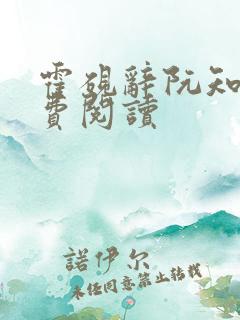 霍砚辞阮知
費閱讀
諾伊尔
未经同意禁止转载